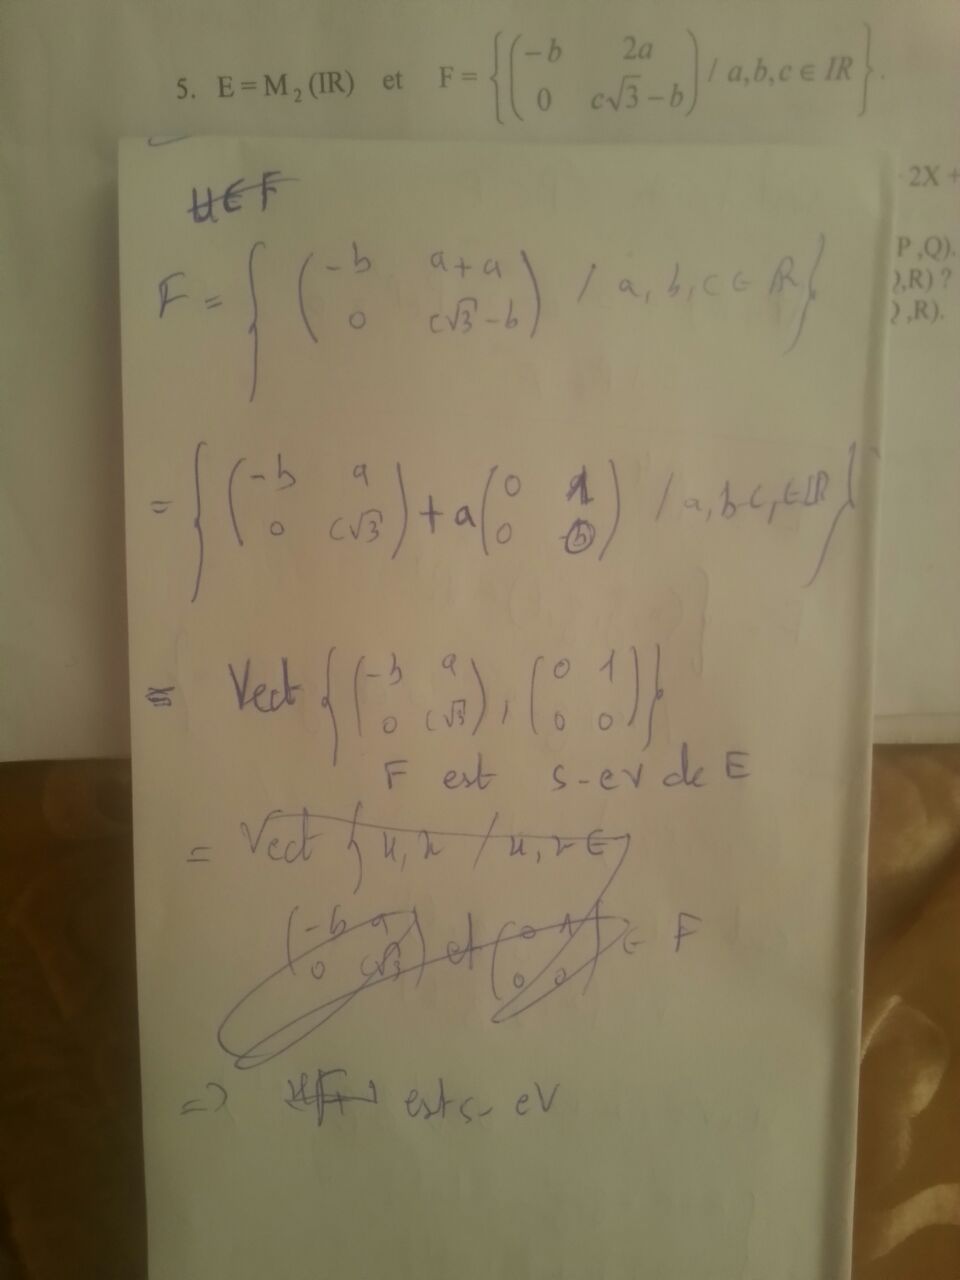 5. E = M₂(IR) et F = { ( -b 2a ; 0 c√3 - b ) / a,b,c ∈ IR }.
2X +
P,Q).
,R) ?
,R).
u ∈ F
F = { ( -b a+a ; 0 c√3 - b ) / a, b, c ∈ R }
= { ( -b a ; 0 c√3 ) + a ( 0 1 ; 0 ) / a, b, c, ∈ IR }
= Vect { ( -b a ; 0 c√3 ), ( 0 1 ; 0 0 ) }
F est s-ev de E
= Vect { u,
( -b a ; 0 c√3 ) et ( 0 1 ; 0 0 ) ∈ F
=> est s- ev